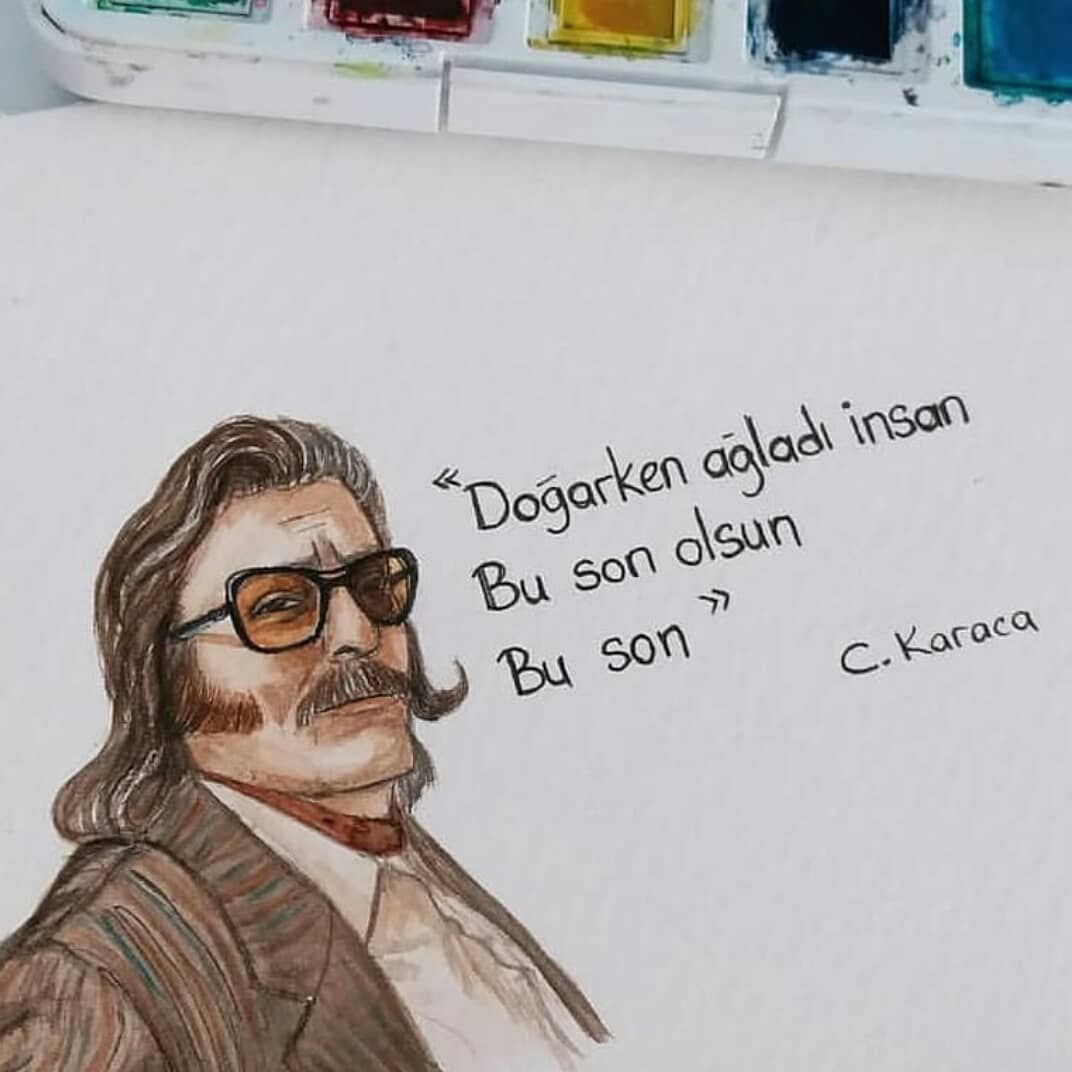 «Doğarken ağladı insan
Bu son olsun
Bu son»
C. Karaca